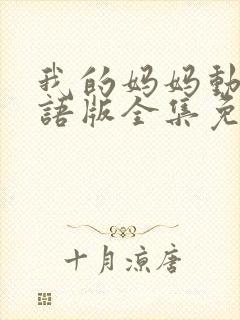 我的妈妈動
語版全集免
十月凉唐